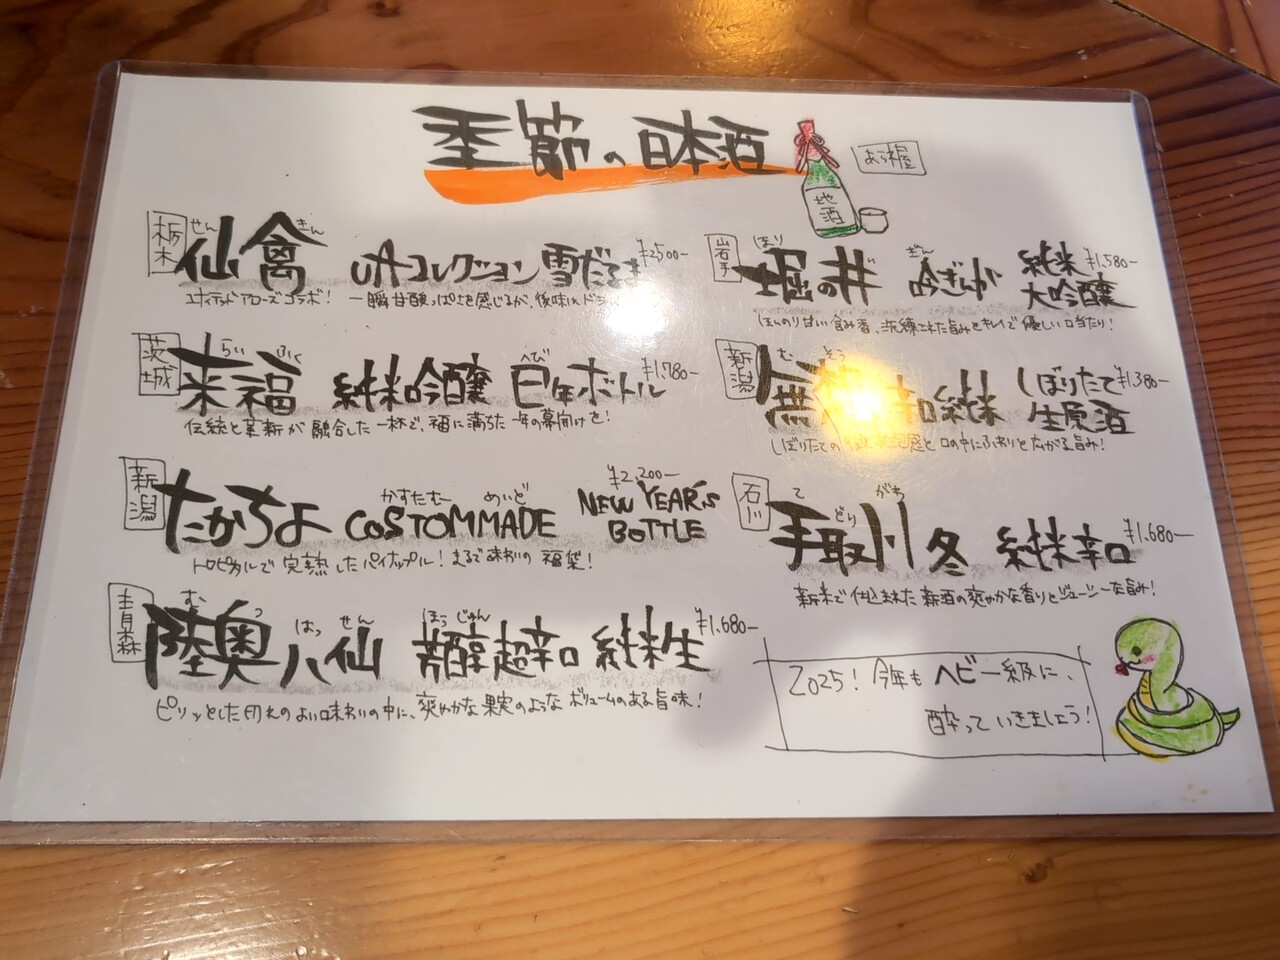 季節の日本酒
地酒
栃木
せん きん
仙禽 UAコレクション 雪だるま ¥2,500-
ユナイテッドアローズコラボ! 一瞬甘酸っぱさを感じるが、後味は
茨城
らい ふく へび
来福 純米吟醸 巳年ボトル ¥1,780-
伝統と革新が融合した一杯で、福に満ちた一年の幕開けを!
新潟
かすたむー めいど
たかちよ COSTOMMADE NEW YEAR'S BOTTLE ¥2,200-
トロピカルで完熟したパイナップル! まるで味わいの福袋!
青森
む つ はっ せん ほうじゅん
陸奥八仙 芳醇超辛口 純米生 ¥1,680-
ピリッとした切れのよい味わいの中に、爽やかな果実のようなボリュームのある旨味!
岩手
ほり ぎん
堀の井 吟ぎんが 純米大吟醸 ¥1,580-
ほんのり甘い含み香、洗練された旨みとキレイで優しい口当たり!
新潟
む そう
無 辛口純米 しぼりたて生原酒 ¥1,380-
しぼりたての 感と口の中にふわりと広がる旨み!
石川
て どり がわ
手取川 冬 純米辛口 ¥1,680-
新米で仕込まれた新酒の爽やかな香りとジューシーな旨み!
2025! 今年もヘビー級に、
酔っていきましょう!